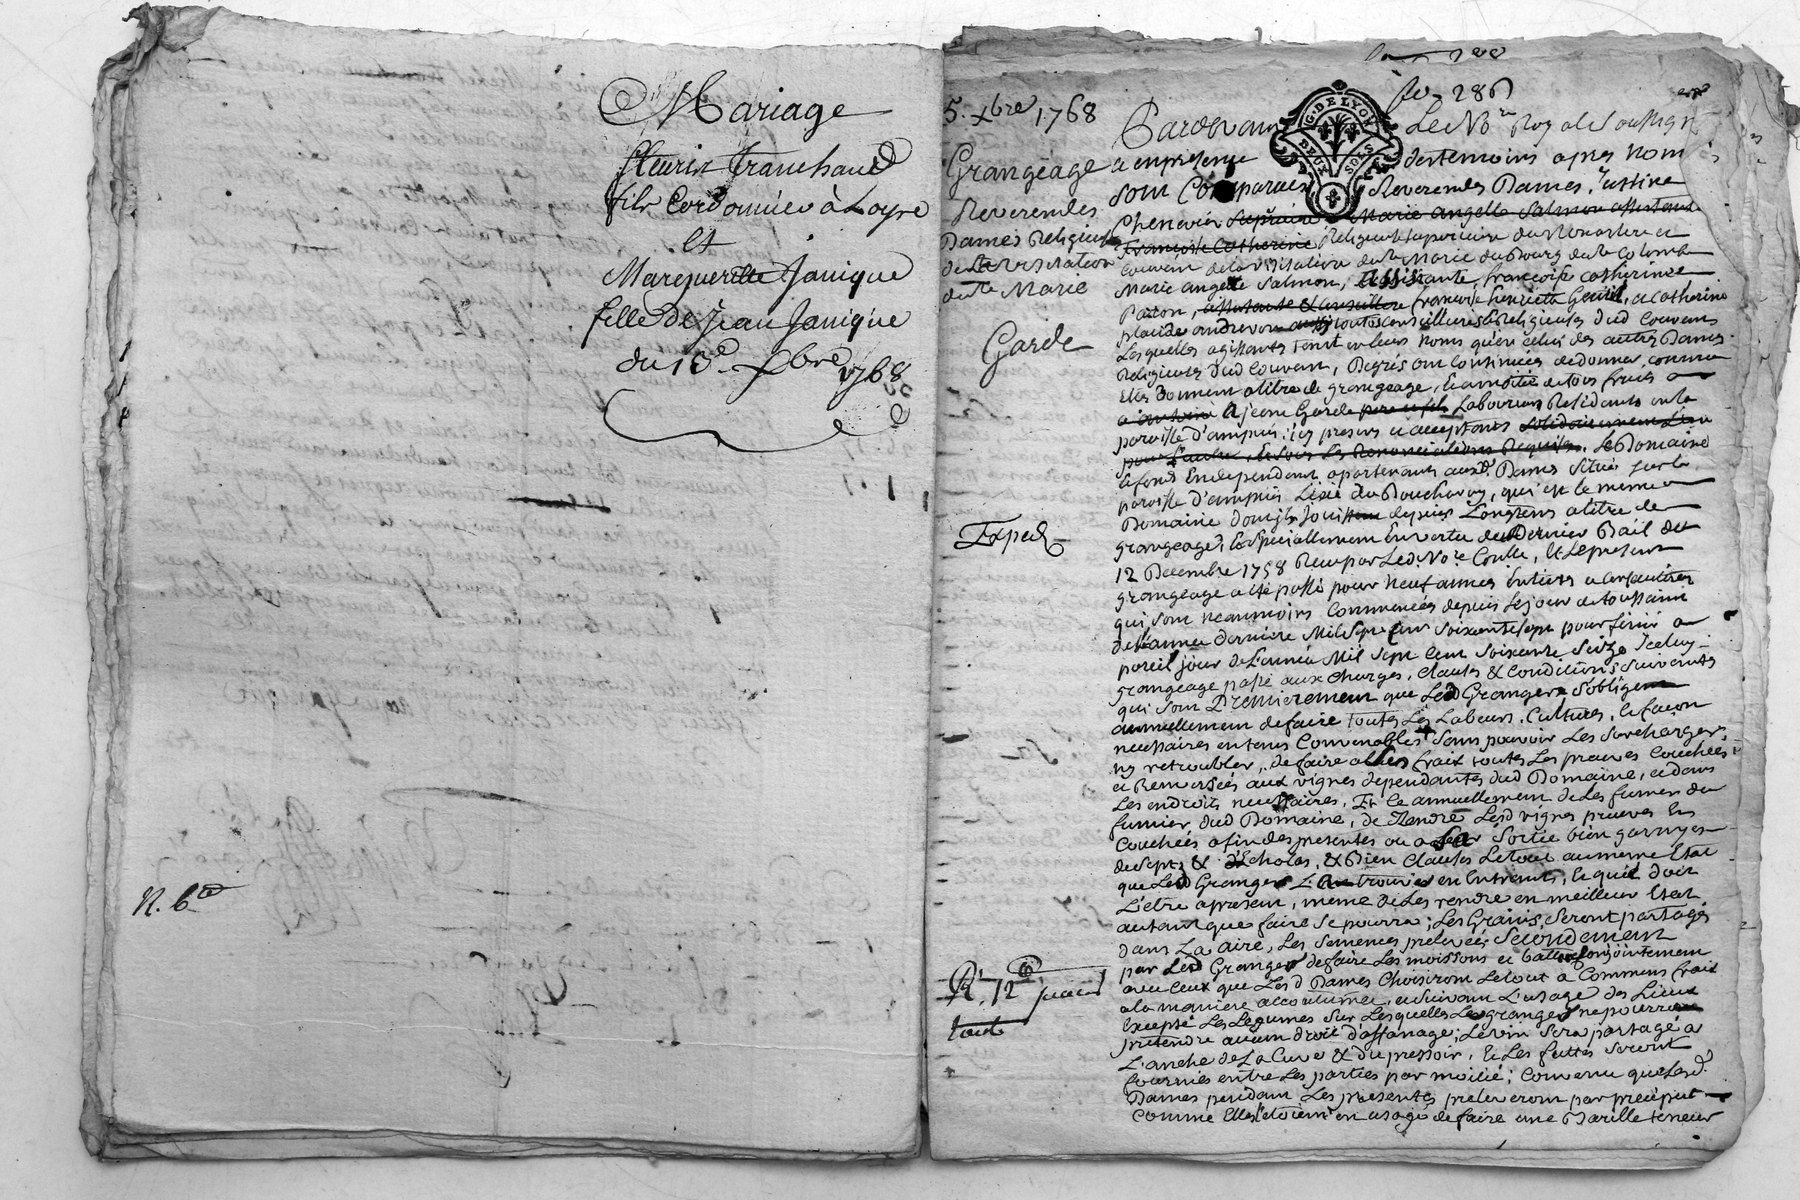 Mariage
fleurix Tranchand
fils Cordonnier à Loyre
Et
Margueritte Janique
fille de Jean Janique
du 13e Xbre 1768
N. 6
fo. 286
5. xbre 1768
Grangeage
Reverendes
Dames Religieuses
de la Visitation
de Ste Marie
Garde
Exped
R. 12
G. DE LYON
DEUX SOLS
Pardevant Le Nore Royal Soussigné
a en presence des temoins apres nom
sont Comparues Reverendes Dames Justine
Chenevier Superieure Marie Angelle Salmon assistante
Françoise Catherine Religieuse Superieure du Monastere et
Couvent de la Visitation de Ste Marie du Bourg de Ste Colombe
Marie angelle Salmon, assistante, françoise Catherinee
assistante & conseillere francoise henriette a Catherine
placide toutes conseilleres & Religieuses dud Couvent
Lesquelles agissantes tant en leurs noms qu'en celui des autres Dames
Religieuses dud Couvent, de donner, comme
Elles Donnent a titre de grangeage, la moitié de tous fruits
a Jean Garde pere et fils Laboureurs Residants en la
paroisse d'ampuis icy presens et acceptants solidairement l'un
pour l'autre, & sous les Renonciations Requises, le Domaine
& fonds En dependant apartenants auxd. Dames Situés sur la
paroisse d'ampuis Lieu du qui est le meme
Domaine dont jls jouissent depuis Longtems a titre de
grangeage, & specialement En vertu du Dernier Bail du
12 Decembre 1758 Reçu par Led. Nore Coulle, Et Le present
grangeage a été passé pour neuf années Entieres
qui sont neanmoins Commencées depuis le jour de toussaint
de l'année derniere Mil Sept Cent Soixante sept pour finir a
pareil jour de l'année Mil Sept Cent Soixante Seize Iceluy
grangeage passé aux Charges, Clauses & Conditions suivantes
qui sont Premierement que Led Granger s'oblige
annuellement de faire toutes Les Labeurs, Cultures, & façons
necessaires en tems Convenables Sans pouvoir Les Surcharger,
ny retroubler, de faire a ses fraix toutes Les preuves Couchées
et Renversées aux vignes dependantes dud Domaine, et dans
Les endroits necessaires, Et Ce annuellement de Les fumer du
fumier dud Domaine, de Rendre Lesd vignes preuves En
Couchées a fin des presentes ou a sa Sortie bien garnyes
de Seps, & d'Echalas, & Bien Clauses Le tout au meme Etat
que Led Granger en Entrant, & qu'il doit
L'etre apresent, meme de Les rendre en meilleur Etat
autant que faire se pourra; Les Grains Seront partagés
dans La aire, Les Semences prelevées Secondement
par Led Granger de faire Les moissons et battre Conjointement
avec Ceux que Lesd Dames Choisiront Le tout a Communs fraix
a la maniere accoutumée, en suivant L'usage des Lieux
Excepté Les Legumes Sur Lesquelles Le granger ne pourra
pretendre aucun droit d'affanage; Le vin sera partagé a
L'anche de La Cuve & du pressoir, & Les futtes seront
fournies entre Les parties par moitié; Convenu que Lesd.
Dames pendant Les presentes preleveront par preciput
Comme Elles etoient en usage de faire une Barille teneur